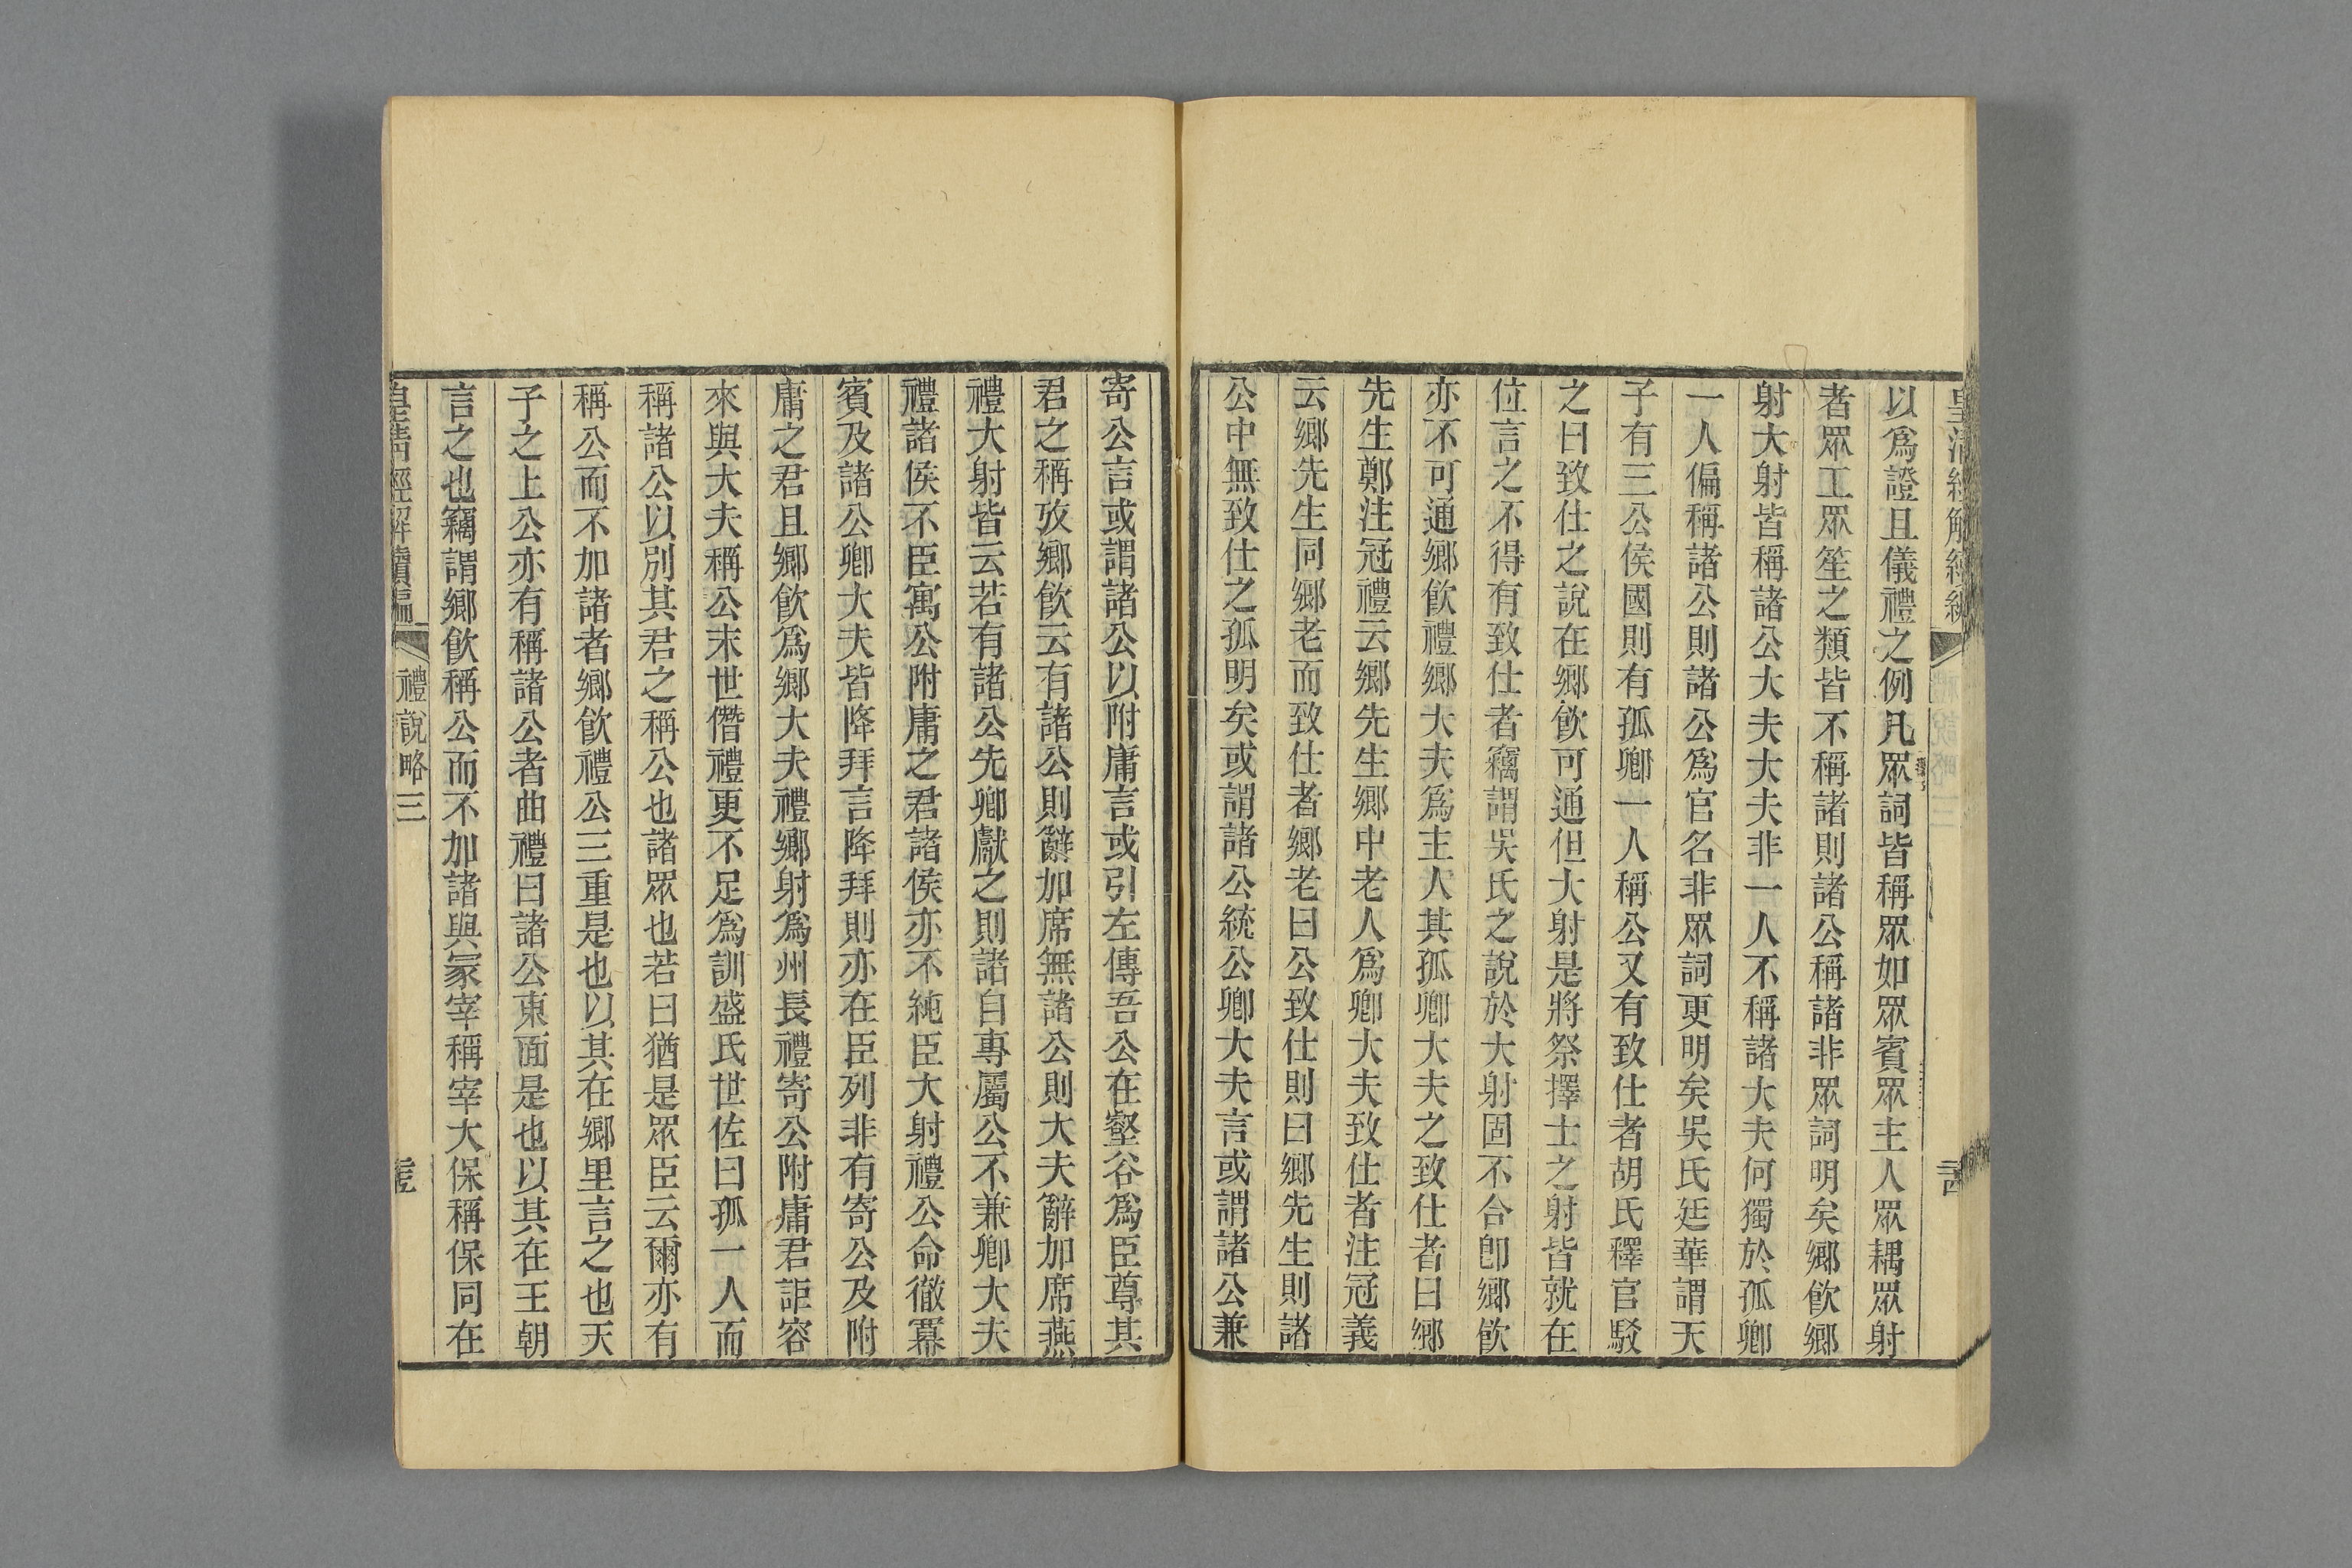 以爲證且儀禮之例凡眾詞皆稱眾如眾賓眾主人眾耦眾射
者眾工眾笙之類皆不稱諸則諸公稱諸非眾詞明矣鄉飮鄉
射大射皆稱諸公大夫大夫非一人不稱諸大夫何獨於孤卿
一人偏稱諸公則諸公爲官名非眾詞更明矣吳氏廷華謂天
子有三公侯國則有孤卿一人稱公又有致仕者胡氏釋官駁
之曰致仕之說在鄉飮可通但大射是將祭擇士之射皆就在
位言之不得有致仕者竊謂吳氏之說於大射固不合卽鄉飮
亦不可通鄉飮禮鄉大夫爲主人其孤卿大夫之致仕者曰鄉
先生鄭注冠禮云鄉先生鄉中老人爲卿大夫致仕者注冠義
云鄉先生同鄉老而致仕者鄉老曰公致仕則曰鄉先生則諸
公中無致仕之孤明矣或謂諸公統公卿大夫言或謂諸公兼
寄公言或謂諸公以附庸言或引左傳吾公在壑谷爲臣尊其
君之稱攷鄉飮云有諸公則辭加席無諸公則大夫辭加席燕
禮大射皆云若有諸公先卿獻之則諸自專屬公不兼卿大夫
禮諸侯不臣寓公附庸之君諸侯亦不純臣大射禮公命徹冪
賓及諸公卿大夫皆降拜言降拜則亦在臣列非有寄公及附
庸之君且鄉飮爲鄉大夫禮鄉射爲州長禮寄公附庸君詎容
來與大夫稱公末世僭禮更不足爲訓盛氏世佐曰孤一人而
稱諸公以別其君之稱公也諸眾也若曰猶是眾臣云爾亦有
稱公而不加諸者鄉飮禮公三重是也以其在鄉里言之也天
子之上公亦有稱諸公者曲禮曰諸公東面是也以其在王朝
言之也竊謂鄉飮稱公而不加諸與冢宰稱宰大保稱保同在
皇清經解續編
禮說略三